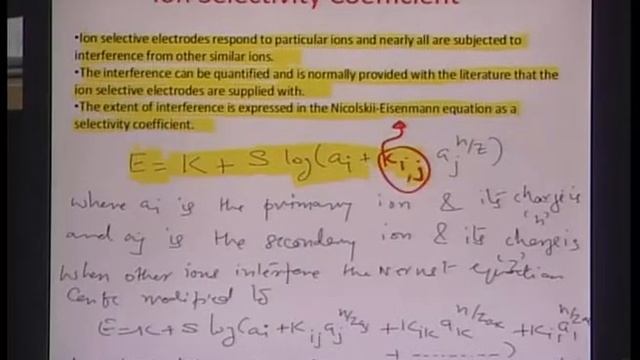 Ion Selectivity Coefficient
•Ion selective electrodes respond to particular ions and nearly all are subjected to
interference from other similar ions.
•The interference can be quantified and is normally provided with the literature that the
ion selective electrodes are supplied with.
•The extent of interference is expressed in the Nicolskii-Eisenmann equation as a
selectivity coefficient.
E = K + S log(ai + Ki,j aj^n/z)
where ai is the primary ion & its charge is 'n'
and aj is the secondary ion & its charge is 'z'
When other ions interfere the Nernst equation
Can be modified to
E=K+S log(ai + Kij aj + Kik ak +
+ ----------)